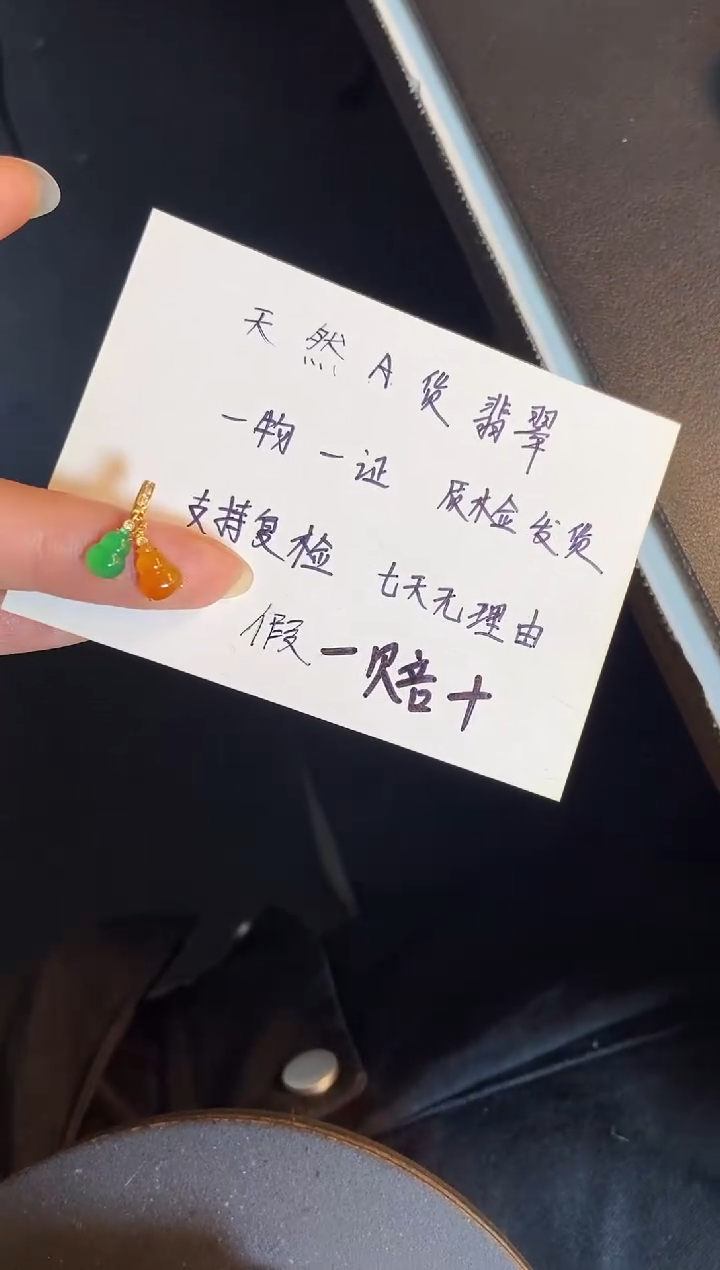 天然A货翡翠
一物一证 质检发货
支持复检 七天无理由
假一赔十